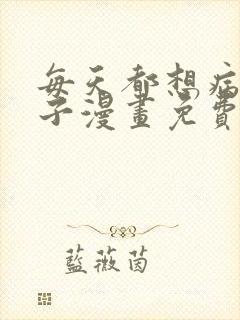 每天都想病
子漫畫免費
藍薇茵